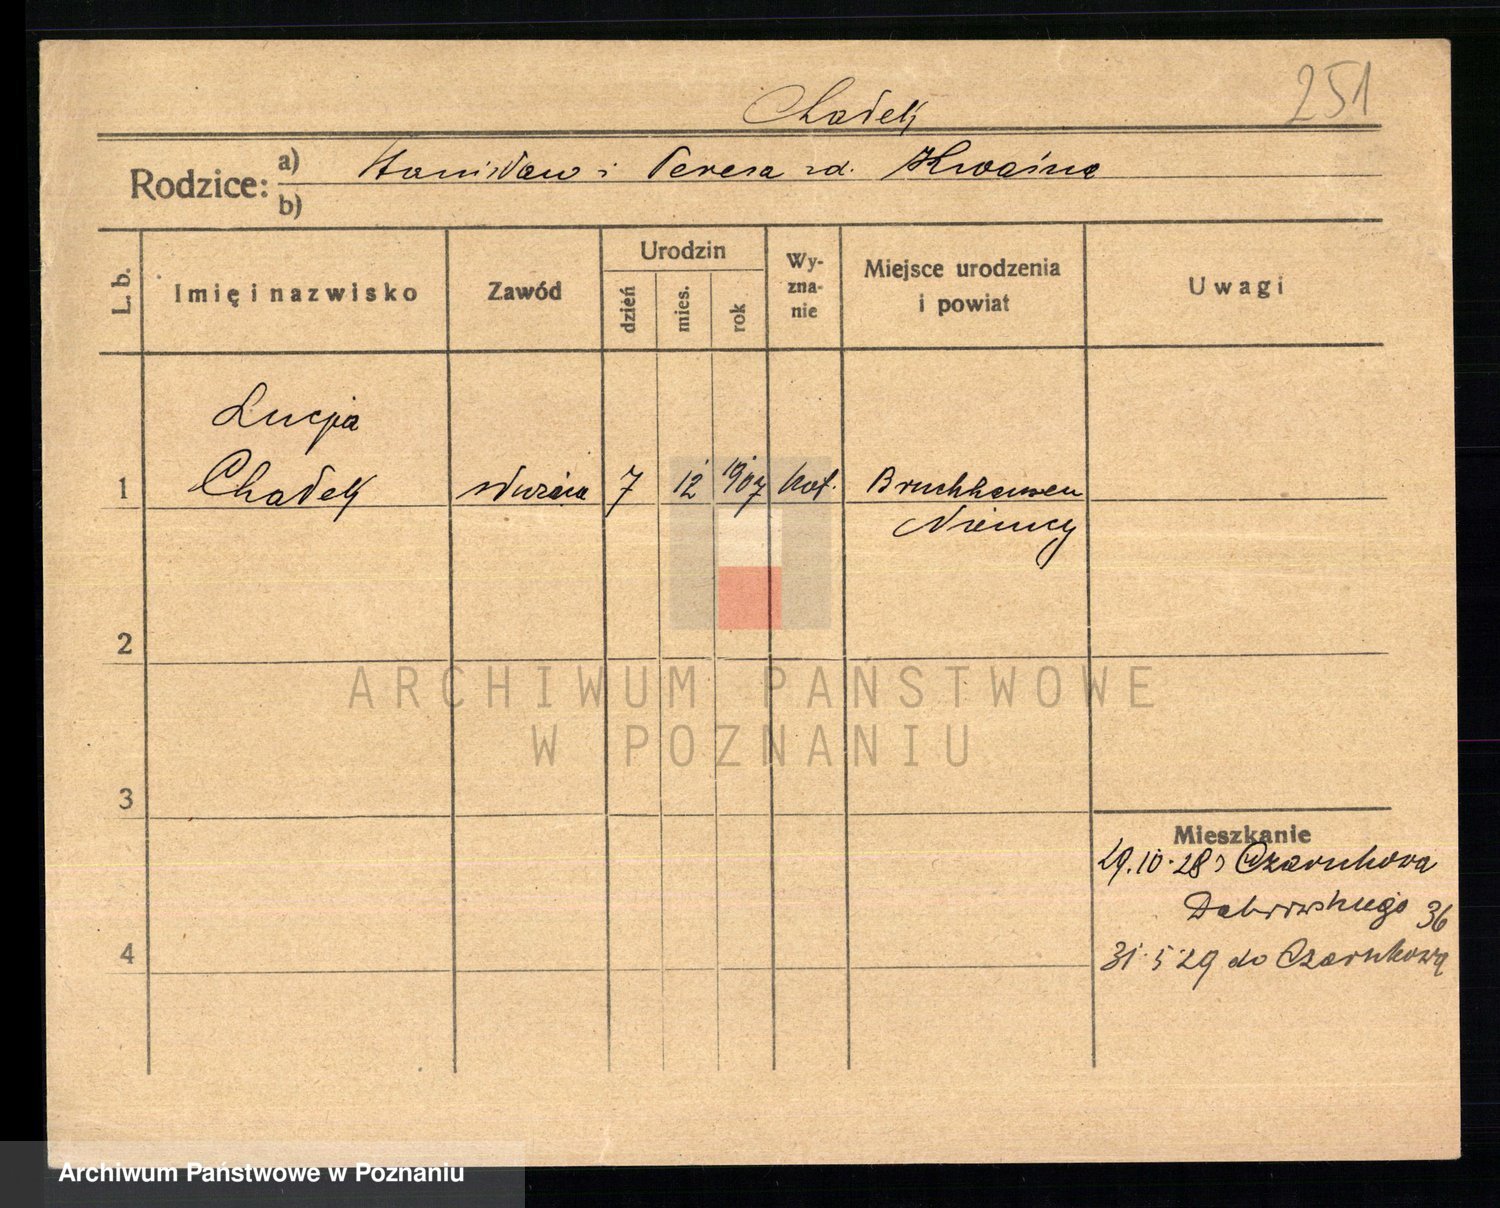 251
Chadek
Rodzice: a) Stanisław i Teresa zd.
b)
L. b. Imię i nazwisko Zawód Urodzin dzień mies. rok Wy-zna-nie Miejsce urodzenia i powiat Uwagi
Lucja
1 Chadek służąca 7 12 1907 kat. Bruchhausen
Niemcy
2
ARCHIWUM PAŃSTWOWE
W POZNANIU
3
Mieszkanie
29.10.28 z Czarnkowa
Dąbrowskiego 36
4 31.5.29 do Czarnkowa
Archiwum Państwowe w Poznaniu